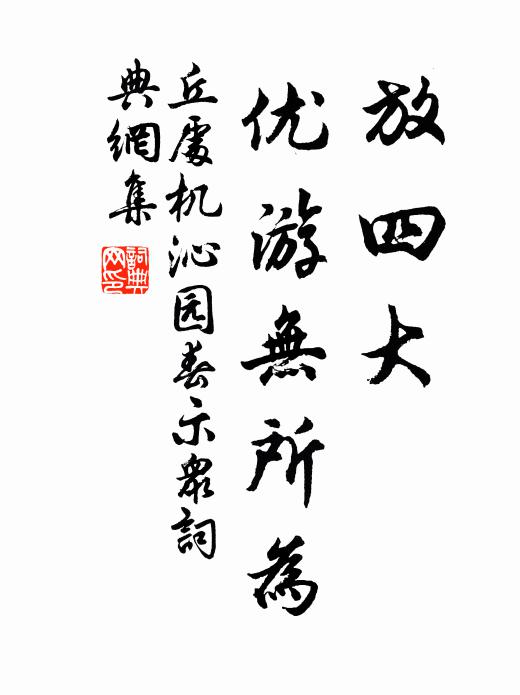 放四大
优游無所為
丘處机沁园春示衆詞
典網集
詞典
网印